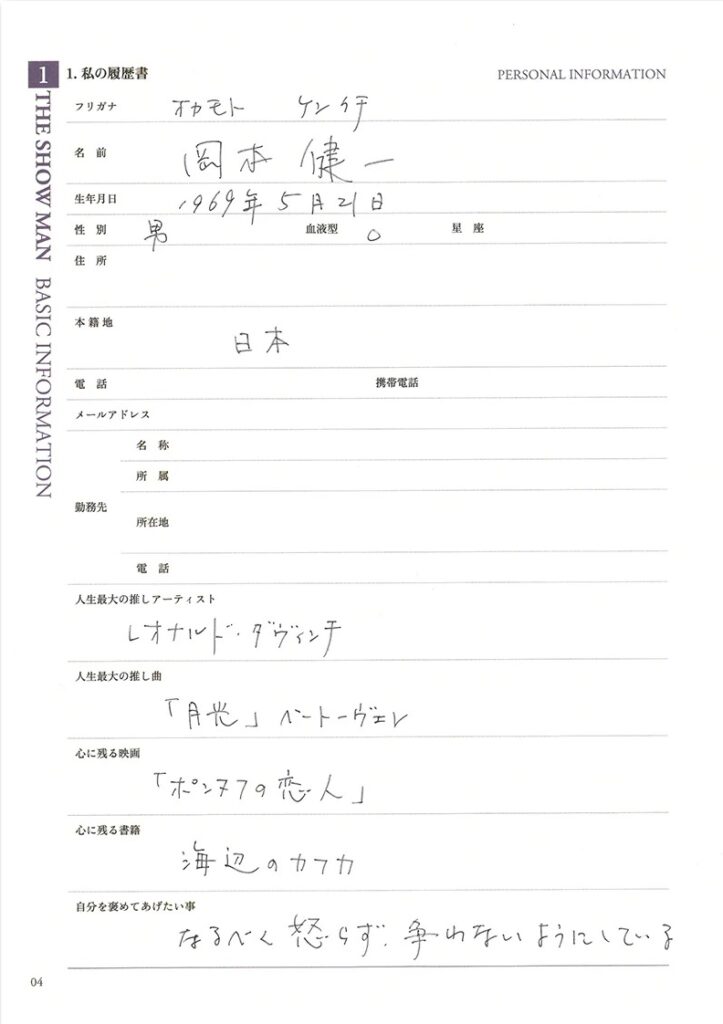 1
1. 私の履歴書
PERSONAL INFORMATION
THE SHOW MAN BASIC INFORMATION
フリガナ オカモト ケンイチ
名前 岡本 健一
生年月日 1969年 5月21日
性別 男 血液型 O 星座
住所
本籍地 日本
電話 携帯電話
メールアドレス
勤務先
名称
所属
所在地
電話
人生最大の推しアーティスト
レオナルド・ダヴィンチ
人生最大の推し曲
「月光」 ベートーヴェン
心に残る映画
「ポンヌフの恋人」
心に残る書籍
海辺のカフカ
自分を褒めてあげたい事
なるべく怒らず、争わないようにしている
04